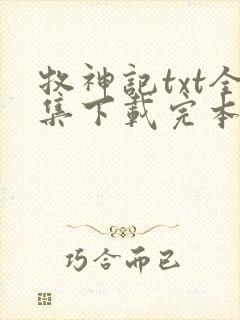 牧神記txt全
集下載完本
巧合而已